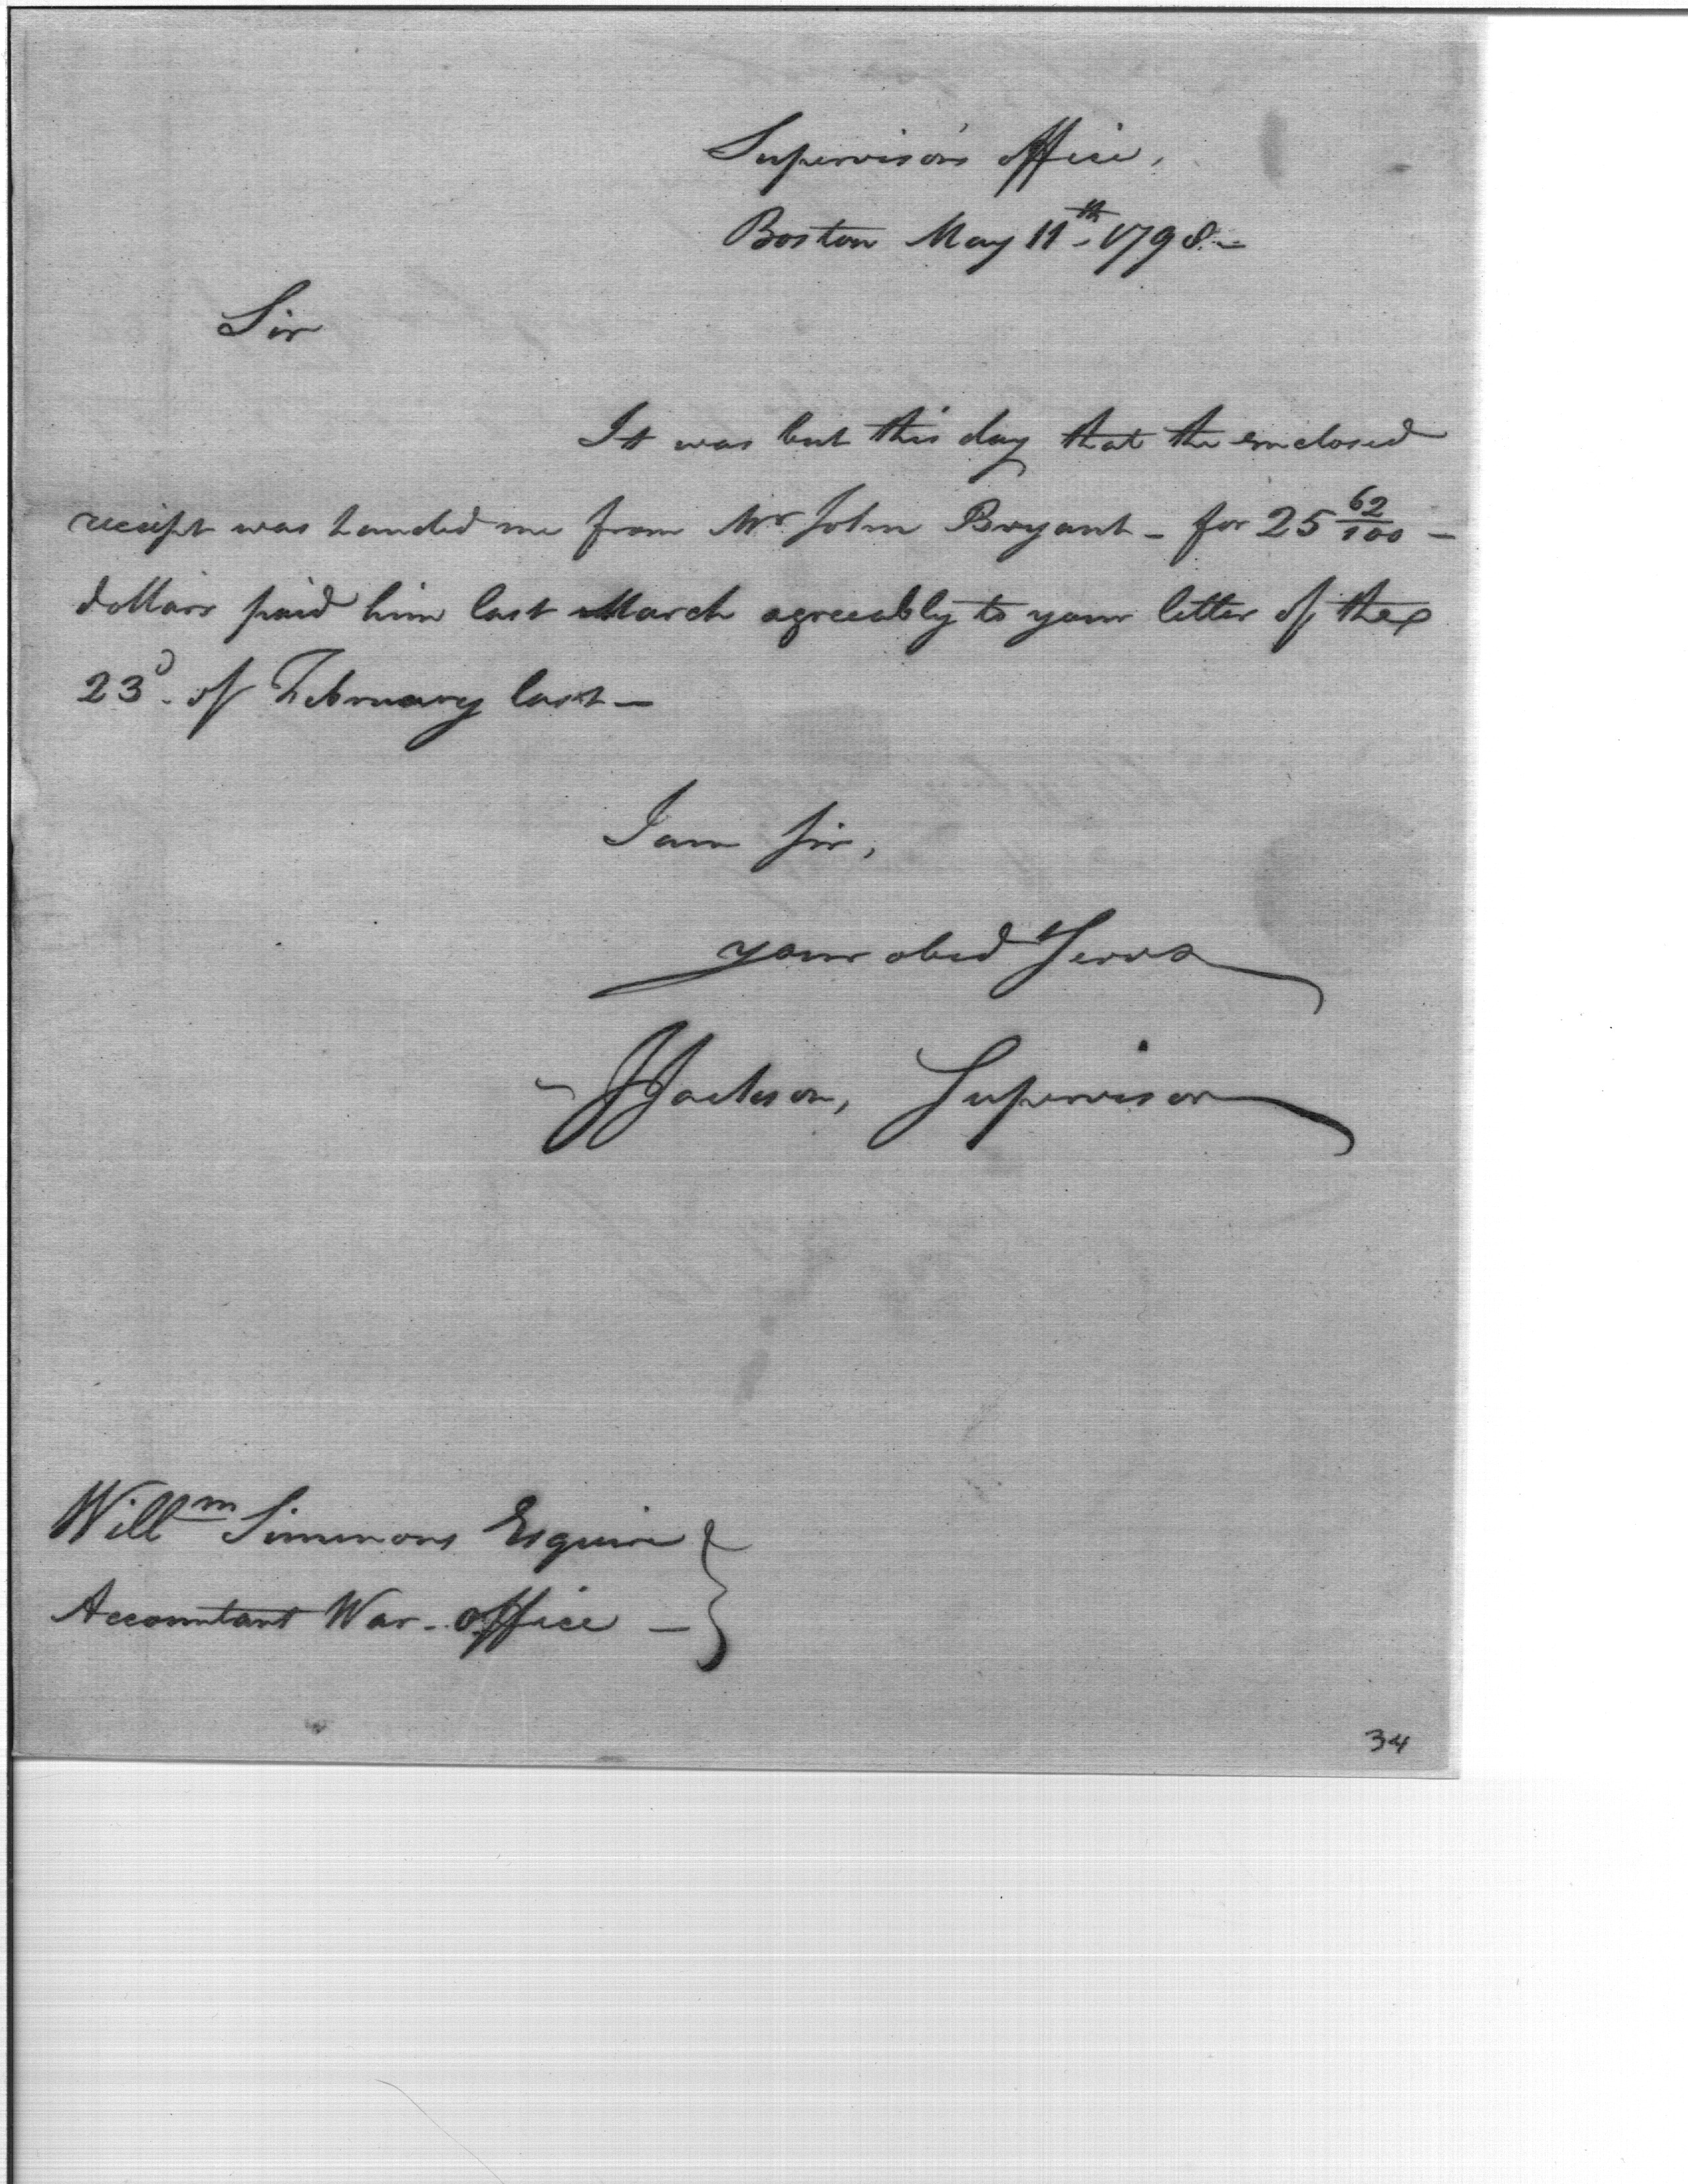 Supervisor's office,
Boston May 11th. 1798.–
Sir
It was but this day that the enclosed
receipt was handed me from Mr John Bryant – for 25 62/100 –
dollars paid him last March agreeably to your letter of the
23d. of February last –
I am Sir,
your obed Servt
J Jackson, Supervisor
Willm Simmons Esquire
Accountant War-office –
34